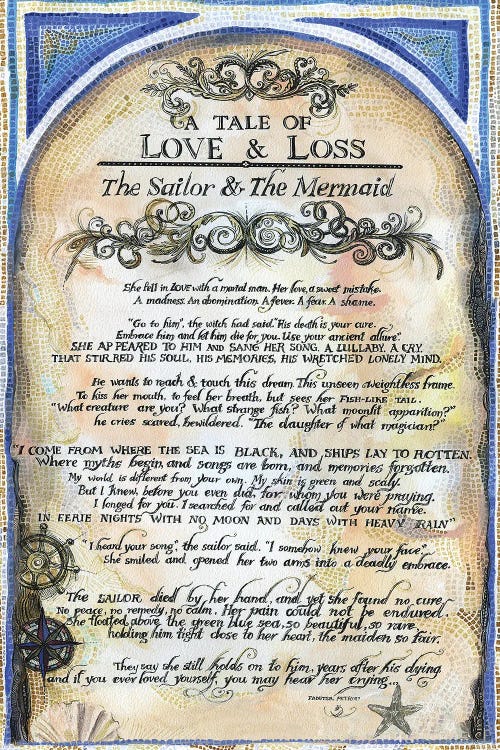 A TALE OF
LOVE & LOSS
The Sailor & The Mermaid
She fell in LOVE with a mortal man. Her love, a sweet mistake.
A madness. An abomination. A fever. A fear. A shame.
"Go to him", the witch had said. "His death is your cure.
Embrace him and let him die for you. Use your ancient allure".
SHE APPEARED TO HIM AND SANG HER SONG. A LULLABY. A CRY.
THAT STIRRED HIS SOUL, HIS MEMORIES, HIS WRETCHED LONELY MIND.
He wants to reach & touch this dream. This unseen weightless frame.
To kiss her mouth, to feel her breath, but sees her FISH-LIKE TAIL.
"What creature are you? What strange fish? What moonlit apparition?"
he cries scared, bewildered. "The daughter of what magician?"
"I COME FROM WHERE THE SEA IS BLACK, AND SHIPS LAY TO ROTTEN.
Where myths begin, and songs are born, and memories forgotten.
My world is different from your own. My skin is green and scaly.
But I knew, before you even did, for whom you were praying.
I longed for you. I searched for and called out your name.
IN EERIE NIGHTS WITH NO MOON AND DAYS WITH HEAVY RAIN"
"I heard your song", the sailor said. "I somehow knew your face",
She smiled and opened her two arms into a deadly embrace.
The SAILOR died by her hand, and yet she found no cure.
No peace, no remedy, no calm. Her pain could not be endured.
She floated above the green blue sea, so beautiful, so rare,
holding him tight close to her heart, the maiden so fair.
They say she still holds on to him, years after his dying
and if you ever loved yourself, you may hear her crying...